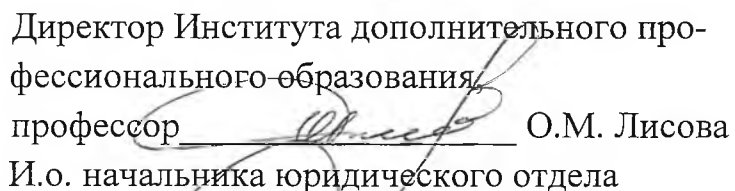 Директор Института дополнительного про-
фессионального образования,
профессор____________________ О.М. Лисова
И.о. начальника юридического отдела